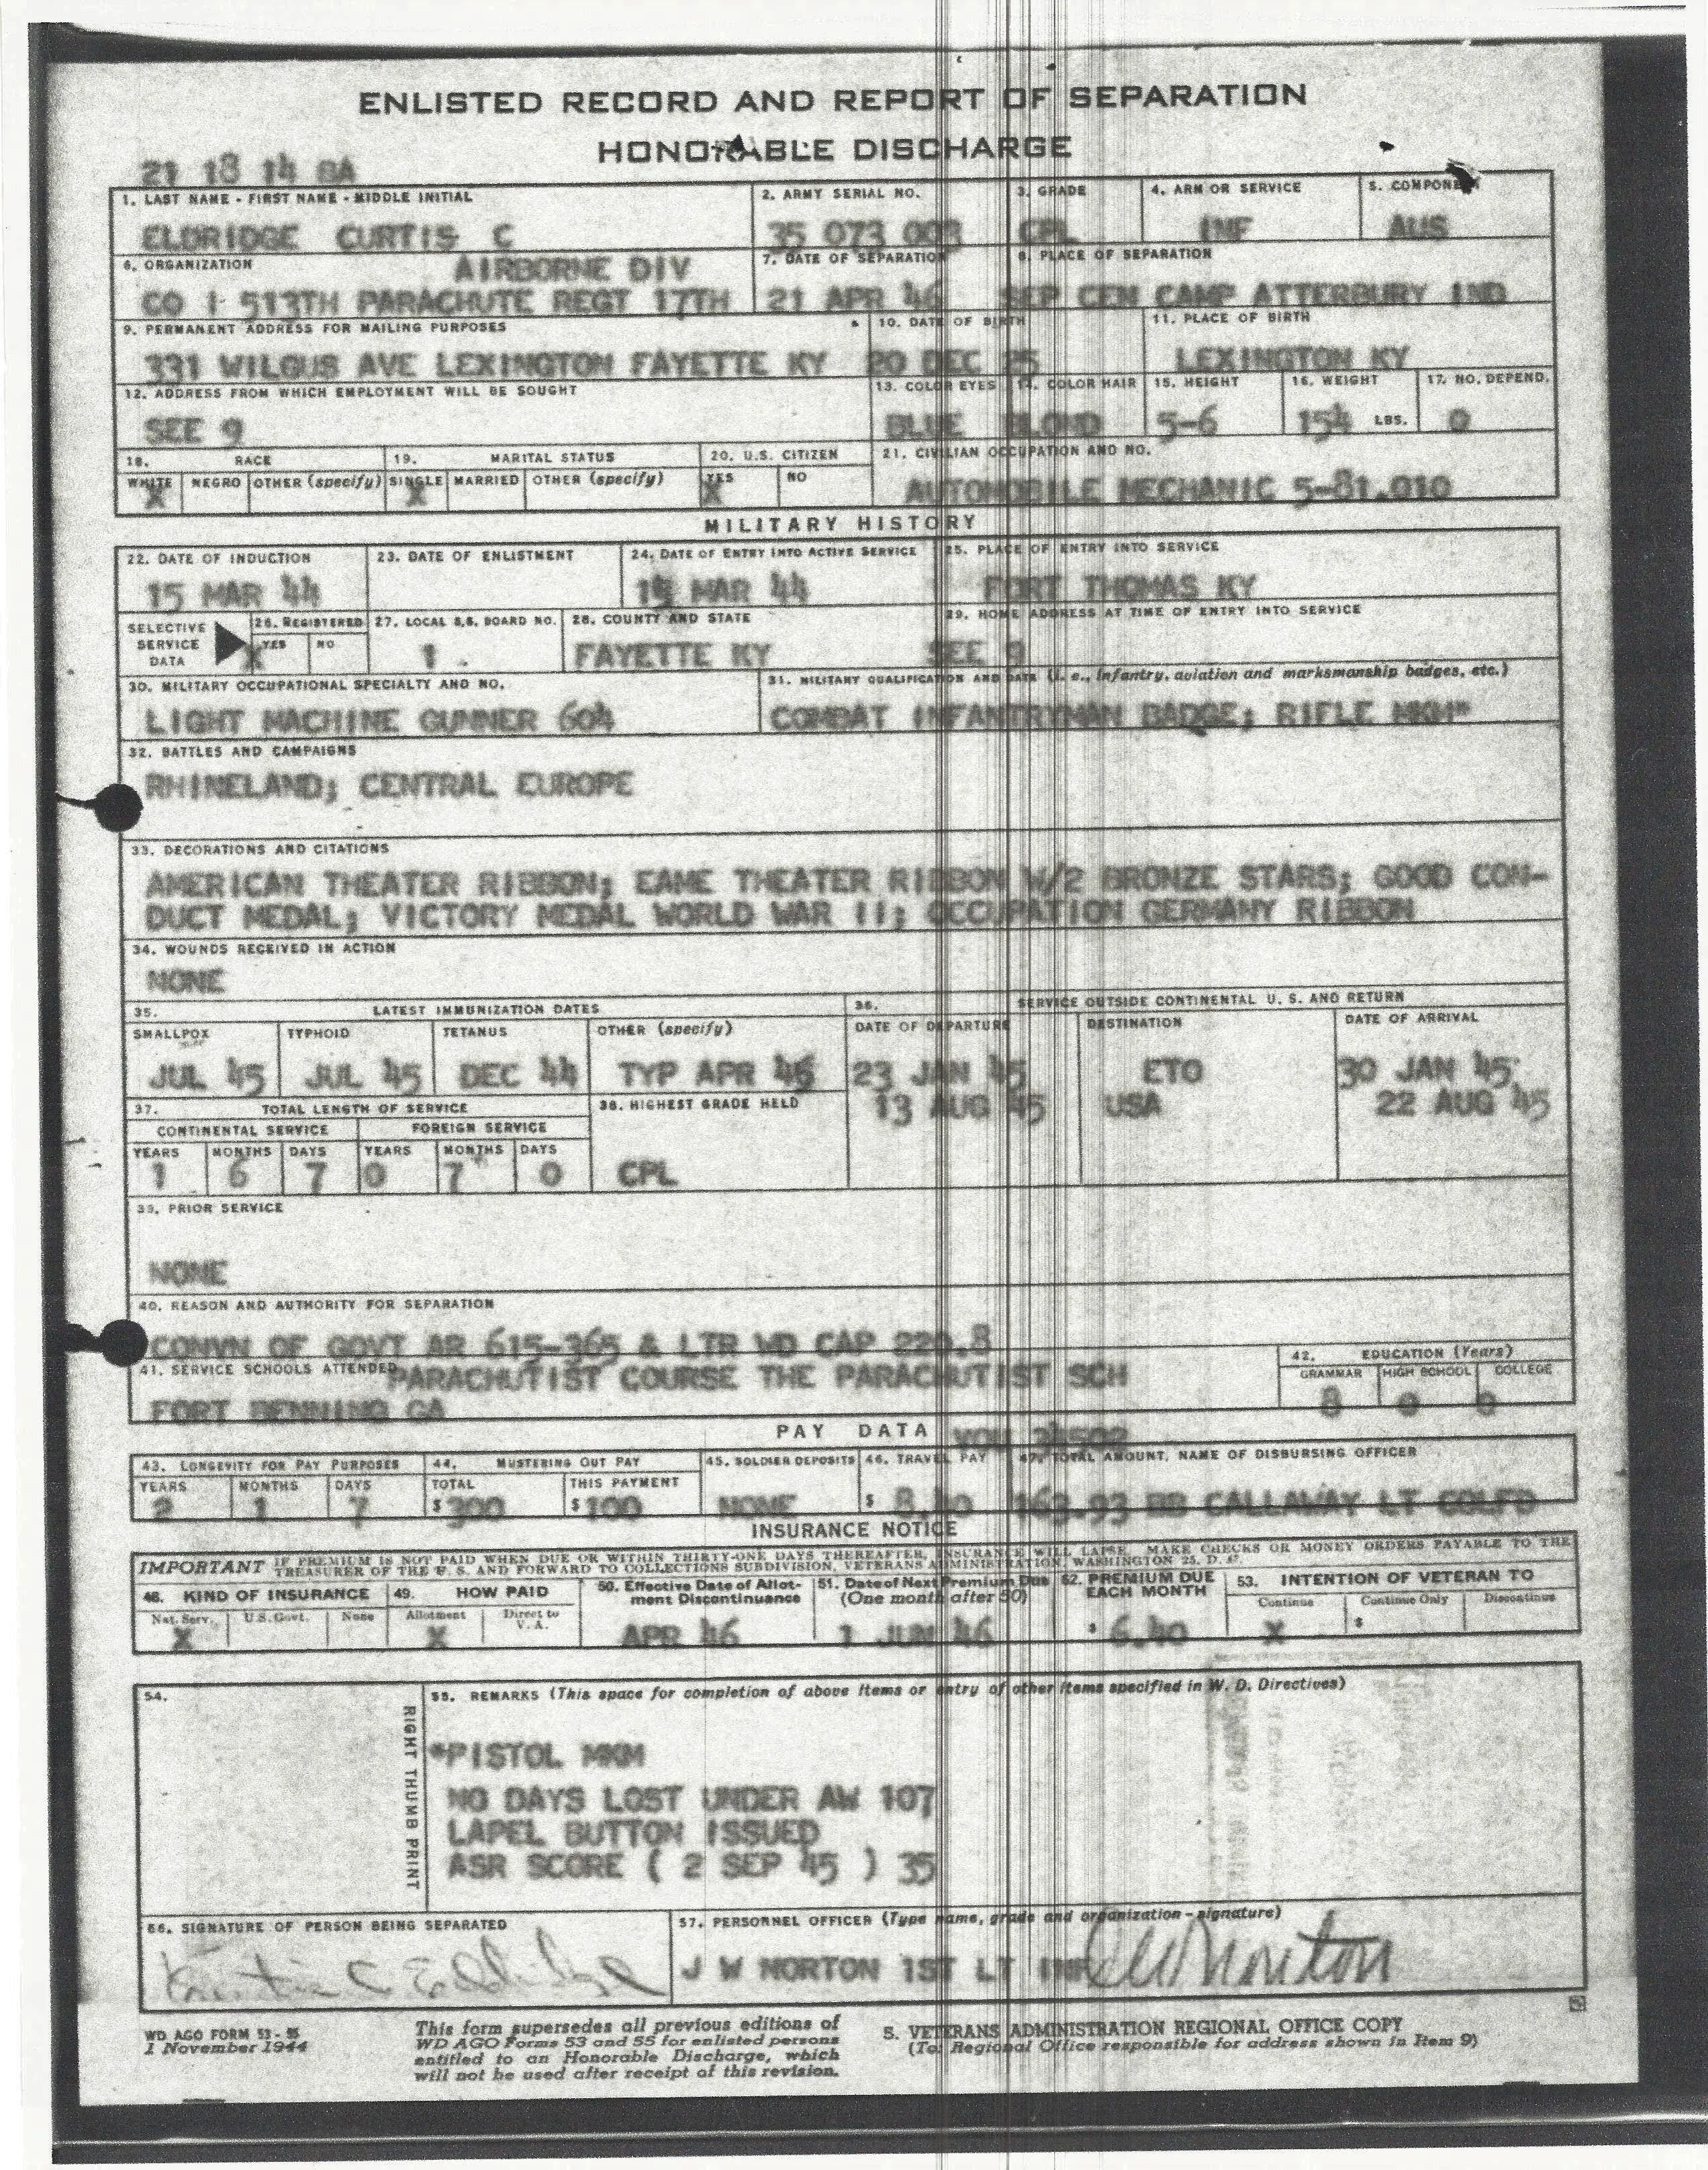 ENLISTED RECORD AND REPORT OF SEPARATION
HONORABLE DISCHARGE
21 18 14 BA
1. LAST NAME - FIRST NAME - MIDDLE INITIAL 2. ARMY SERIAL NO. 3. GRADE 4. ARM OR SERVICE 5. COMPONENT
ELDRIDGE CURTIS C 35 073 003 CPL INF AUS
6. ORGANIZATION AIRBORNE DIV 7. DATE OF SEPARATION 8. PLACE OF SEPARATION
CO I 513TH PARACHUTE REGT 17TH 21 APR 46 SEP CEN CAMP ATTERBURY IND
9. PERMANENT ADDRESS FOR MAILING PURPOSES 10. DATE OF BIRTH 11. PLACE OF BIRTH
331 WILGUS AVE LEXINGTON FAYETTE KY 20 DEC 25 LEXINGTON KY
12. ADDRESS FROM WHICH EMPLOYMENT WILL BE SOUGHT 13. COLOR EYES 14. COLOR HAIR 15. HEIGHT 16. WEIGHT 17. NO. DEPEND.
SEE 9 BLUE BLOND 5-6 154 LBS. 0
18. RACE 19. MARITAL STATUS 20. U.S. CITIZEN 21. CIVILIAN OCCUPATION AND NO.
WHITE NEGRO OTHER (specify) SINGLE MARRIED OTHER (specify) YES NO
X X X AUTOMOBILE MECHANIC 5-81.010
MILITARY HISTORY
22. DATE OF INDUCTION 23. DATE OF ENLISTMENT 24. DATE OF ENTRY INTO ACTIVE SERVICE 25. PLACE OF ENTRY INTO SERVICE
15 MAR 44 15 MAR 44 FORT THOMAS KY
SELECTIVE SERVICE DATA 26. REGISTERED 27. LOCAL S.S. BOARD NO. 28. COUNTY AND STATE 29. HOME ADDRESS AT TIME OF ENTRY INTO SERVICE
YES NO
X 1 FAYETTE KY SEE 9
30. MILITARY OCCUPATIONAL SPECIALTY AND NO. 31. MILITARY QUALIFICATION AND DATE (i. e., infantry, aviation and marksmanship badges, etc.)
LIGHT MACHINE GUNNER 604 COMBAT INFANTRYMAN BADGE; RIFLE MKM*
32. BATTLES AND CAMPAIGNS
RHINELAND; CENTRAL EUROPE
33. DECORATIONS AND CITATIONS
AMERICAN THEATER RIBBON; EAME THEATER RIBBON W/2 BRONZE STARS; GOOD CON-
DUCT MEDAL; VICTORY MEDAL WORLD WAR II; OCCUPATION GERMANY RIBBON
34. WOUNDS RECEIVED IN ACTION
NONE
35. LATEST IMMUNIZATION DATES 36. SERVICE OUTSIDE CONTINENTAL U. S. AND RETURN
SMALLPOX TYPHOID TETANUS OTHER (specify) DATE OF DEPARTURE DESTINATION DATE OF ARRIVAL
JUL 45 JUL 45 DEC 44 TYP APR 46 23 JAN 45 ETO 30 JAN 45
37. TOTAL LENGTH OF SERVICE 38. HIGHEST GRADE HELD 13 AUG 45 USA 22 AUG 45
CONTINENTAL SERVICE FOREIGN SERVICE
YEARS MONTHS DAYS YEARS MONTHS DAYS
1 6 7 0 7 0 CPL
39. PRIOR SERVICE
NONE
40. REASON AND AUTHORITY FOR SEPARATION
CONVN OF GOVT AR 615-365 & LTR WD CAP 220.8
41. SERVICE SCHOOLS ATTENDED PARACHUTIST COURSE THE PARACHUTIST SCH 42. EDUCATION (Years)
GRAMMAR HIGH SCHOOL COLLEGE
FORT BENNING GA 8 0 0
PAY DATA VOU 34502
43. LONGEVITY FOR PAY PURPOSES 44. MUSTERING OUT PAY 45. SOLDIER DEPOSITS 46. TRAVEL PAY 47. TOTAL AMOUNT, NAME OF DISBURSING OFFICER
YEARS MONTHS DAYS TOTAL THIS PAYMENT
2 1 7 $ 300 $ 100 NONE $ 8.40 163.93 BB CALLAWAY LT COLFD
INSURANCE NOTICE
IMPORTANT IF PREMIUM IS NOT PAID WHEN DUE OR WITHIN THIRTY-ONE DAYS THEREAFTER, INSURANCE WILL LAPSE. MAKE CHECKS OR MONEY ORDERS PAYABLE TO THE
TREASURER OF THE U. S. AND FORWARD TO COLLECTIONS SUBDIVISION, VETERANS ADMINISTRATION, WASHINGTON 25, D. C.
48. KIND OF INSURANCE 49. HOW PAID 50. Effective Date of Allotment Discontinuance 51. Date of Next Premium Due (One month after 50) 52. PREMIUM DUE EACH MONTH 53. INTENTION OF VETERAN TO
Nat. Serv. U.S. Govt. None Allotment Direct to V. A. Continue Continue Only Discontinue
X X APR 46 1 JUN 46 $ 6.40 X $
54. 55. REMARKS (This space for completion of above items or entry of other items specified in W. D. Directives)
RIGHT THUMB PRINT
*PISTOL MKM
NO DAYS LOST UNDER AW 107
LAPEL BUTTON ISSUED
ASR SCORE ( 2 SEP 45 ) 35
56. SIGNATURE OF PERSON BEING SEPARATED 57. PERSONNEL OFFICER (Type name, grade and organization - signature)
Curtis C Eldridge J W NORTON 1ST LT INF JW Norton
WD AGO FORM 53 - 55
1 November 1944
This form supersedes all previous editions of
WD AGO Forms 53 and 55 for enlisted persons
entitled to an Honorable Discharge, which
will not be used after receipt of this revision.
5. VETERANS ADMINISTRATION REGIONAL OFFICE COPY
(To: Regional Office responsible for address shown in Item 9)